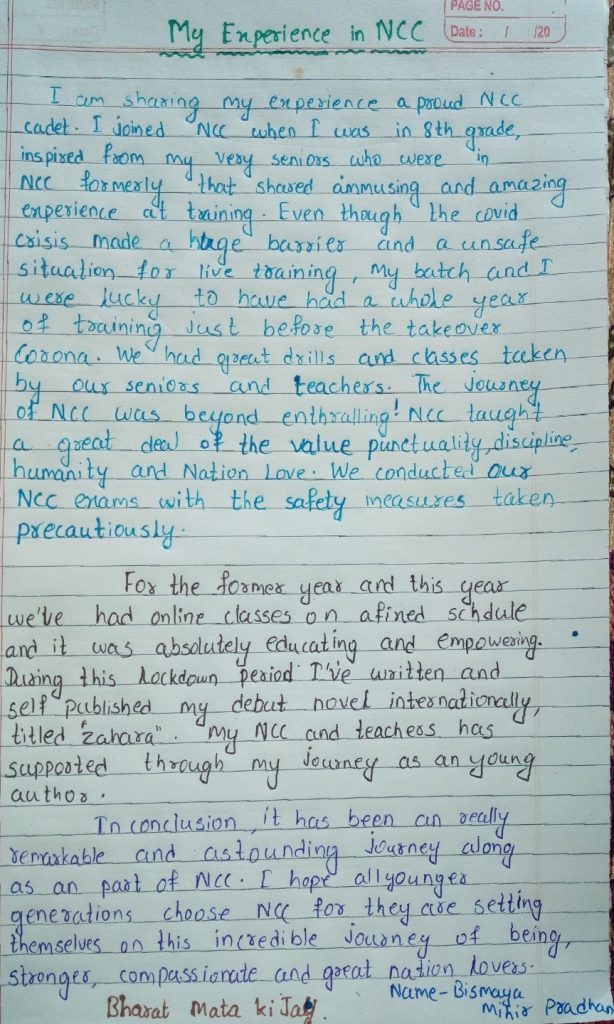 PAGE NO.
Date: / /20
My Experience in NCC
I am sharing my experience a proud NCC
cadet. I joined NCC when I was in 8th grade,
inspired from my very seniors who were in
NCC formerly that shared ammusing and amazing
experience at training. Even though the covid
crisis made a huge barrier and a unsafe
situation for live training, my batch and I
were lucky to have had a whole year
of training just before the takeover
Corona. We had great drills and classes taken
by our seniors and teachers. The journey
of NCC was beyond enthralling! NCC taught
a great deal of the value punctuality, discipline,
humanity and Nation Love. We conducted our
NCC exams with the safety measures taken
precautiously.
For the former year and this year
we've had online classes on afined schdule
and it was absolutely educating and empowering.
During this lockdown period I've written and
self published my debut novel internationally,
titled "Zahara". My NCC and teachers has
supported through my journey as an young
author.
In conclusion, it has been an really
remarkable and astounding journey along
as an part of NCC. I hope all younger
generations choose NCC for they are setting
themselves on this incredible journey of being,
stronger, compassionate and great nation lovers.
Name-Bismaya
Bharat Mata ki Jay. Mihir Pradhan